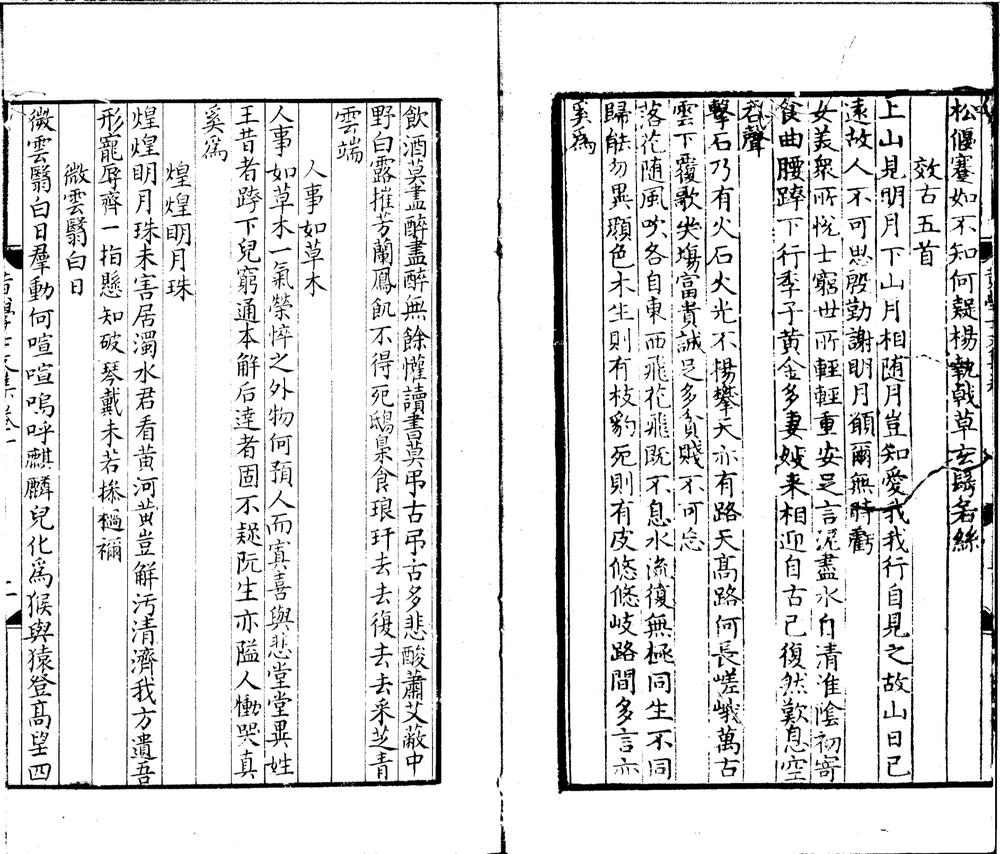 松偃蹇如不知何疑楊執戟草玄鬢若絲
效古五首
上山見明月下山月相随月豈知愛我我行自見之故山日已
遠故人不可思殷勤謝明月願爾無時虧
女美衆所悅士窮世所輕輕重安足言泥盡水自清淮陰初寄
食曲腰跨下行季子黃金多妻嫂来相迎自古已復然歎息空
吞聲
擊石乃有火石火光不揚攀天亦有路天髙路何長嵯峨萬古
雲下覆歌尖塲富貴誠足多貧賤不可忘
落花随風吹各自東西飛花飛既不息水流復無極同生不同
歸能勿異顔色木生則有枝豹死則有皮悠悠岐路間多言亦
奚爲
飲酒莫盡醉盡醉無餘懽讀書莫弔古弔古多悲酸蕭艾蔽中
野白露摧芳蘭鳳飢不得死鴟梟食琅玕去去復去去采芝青
雲端
人事如草木
人事如草木一氣榮悴之外物何預人而寘喜與悲堂堂異姓
王昔者跨下兒窮通本解后達者固不疑阮生亦隘人慟哭真
奚爲
煌煌明月珠
煌煌明月珠未害居濁水君看黄河黄豈解汚清濟我方遺吾
形寵辱齊一指懸知破琴戴未若摻檛禰
微雲翳白日
微雲翳白日羣動何喧喧嗚呼麒麟兒化爲猴與猿登高望四